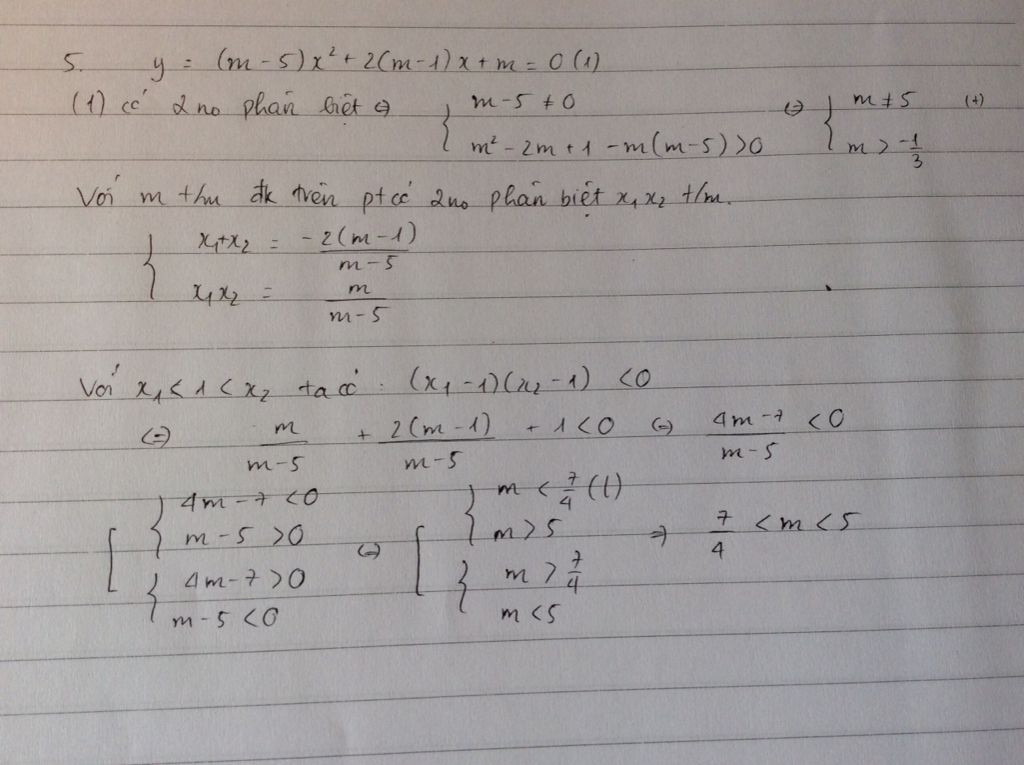 5. y = (m-5)x² + 2(m-1)x + m = 0 (1)
(1) có 2 no phân biệt ⇔ { m-5 ≠ 0 ; m² - 2m + 1 - m(m-5) > 0 ⇔ { m ≠ 5 ; m > -1/3 (+)
Với m t/m đk trên pt có 2 no phân biệt x₁ x₂ t/m.
{ x₁+x₂ = -2(m-1)/(m-5)
x₁x₂ = m/(m-5)
Với x₁ < 1 < x₂ ta có : (x₁-1)(x₂-1) < 0
⇔ m/(m-5) + 2(m-1)/(m-5) + 1 < 0 ⇔ (4m-7)/(m-5) < 0
[ { 4m-7 < 0 ; m-5 > 0 ; { 4m-7 > 0 ; m-5 < 0 ⇔ [ { m < 7/4 (l) ; m > 5 ; { m > 7/4 ; m < 5 ⇒ 7/4 < m < 5